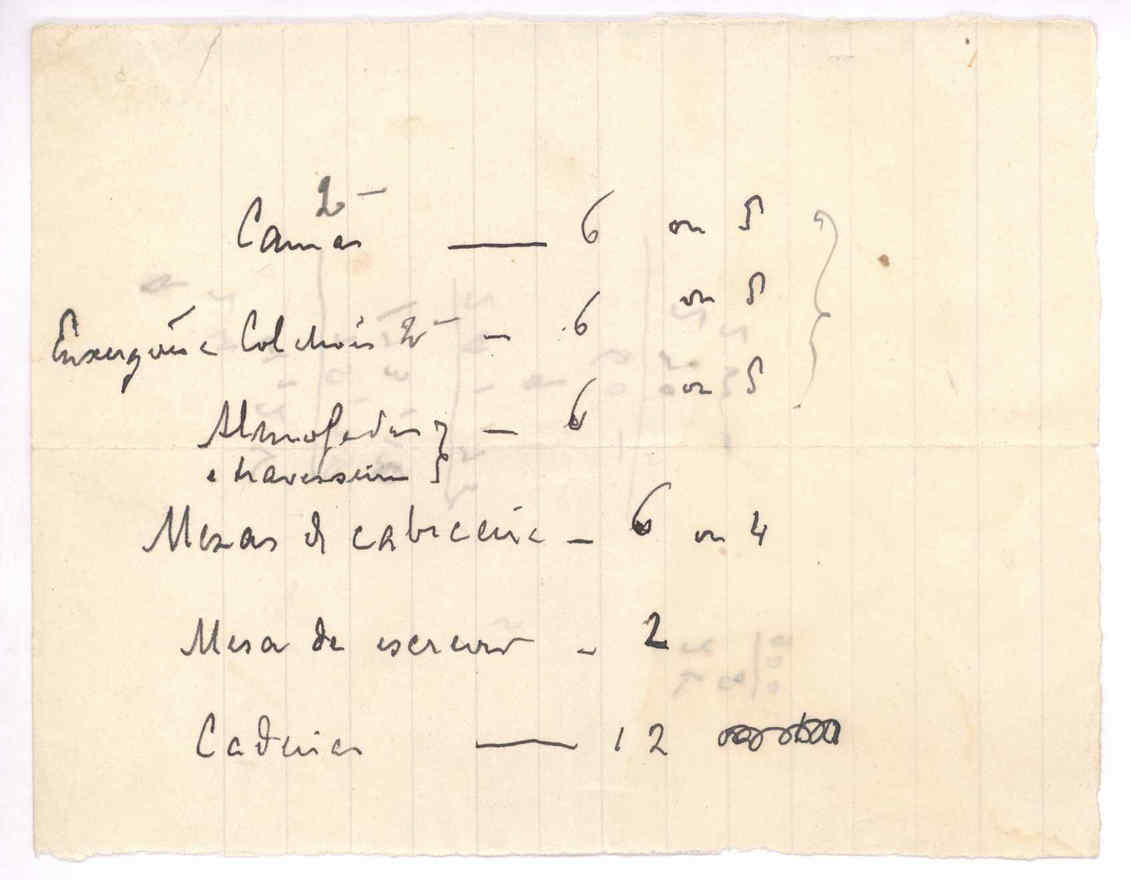 2 –
Camas —— 6 ou 5
Enxergões e Colchões 2 – – 6 ou 5
Almofadas } – 6 ou 5
e travesseiros }
Mezas de cabeceira – 6 ou 4
Mesa de escrever – 2
Cadeiras —— 12